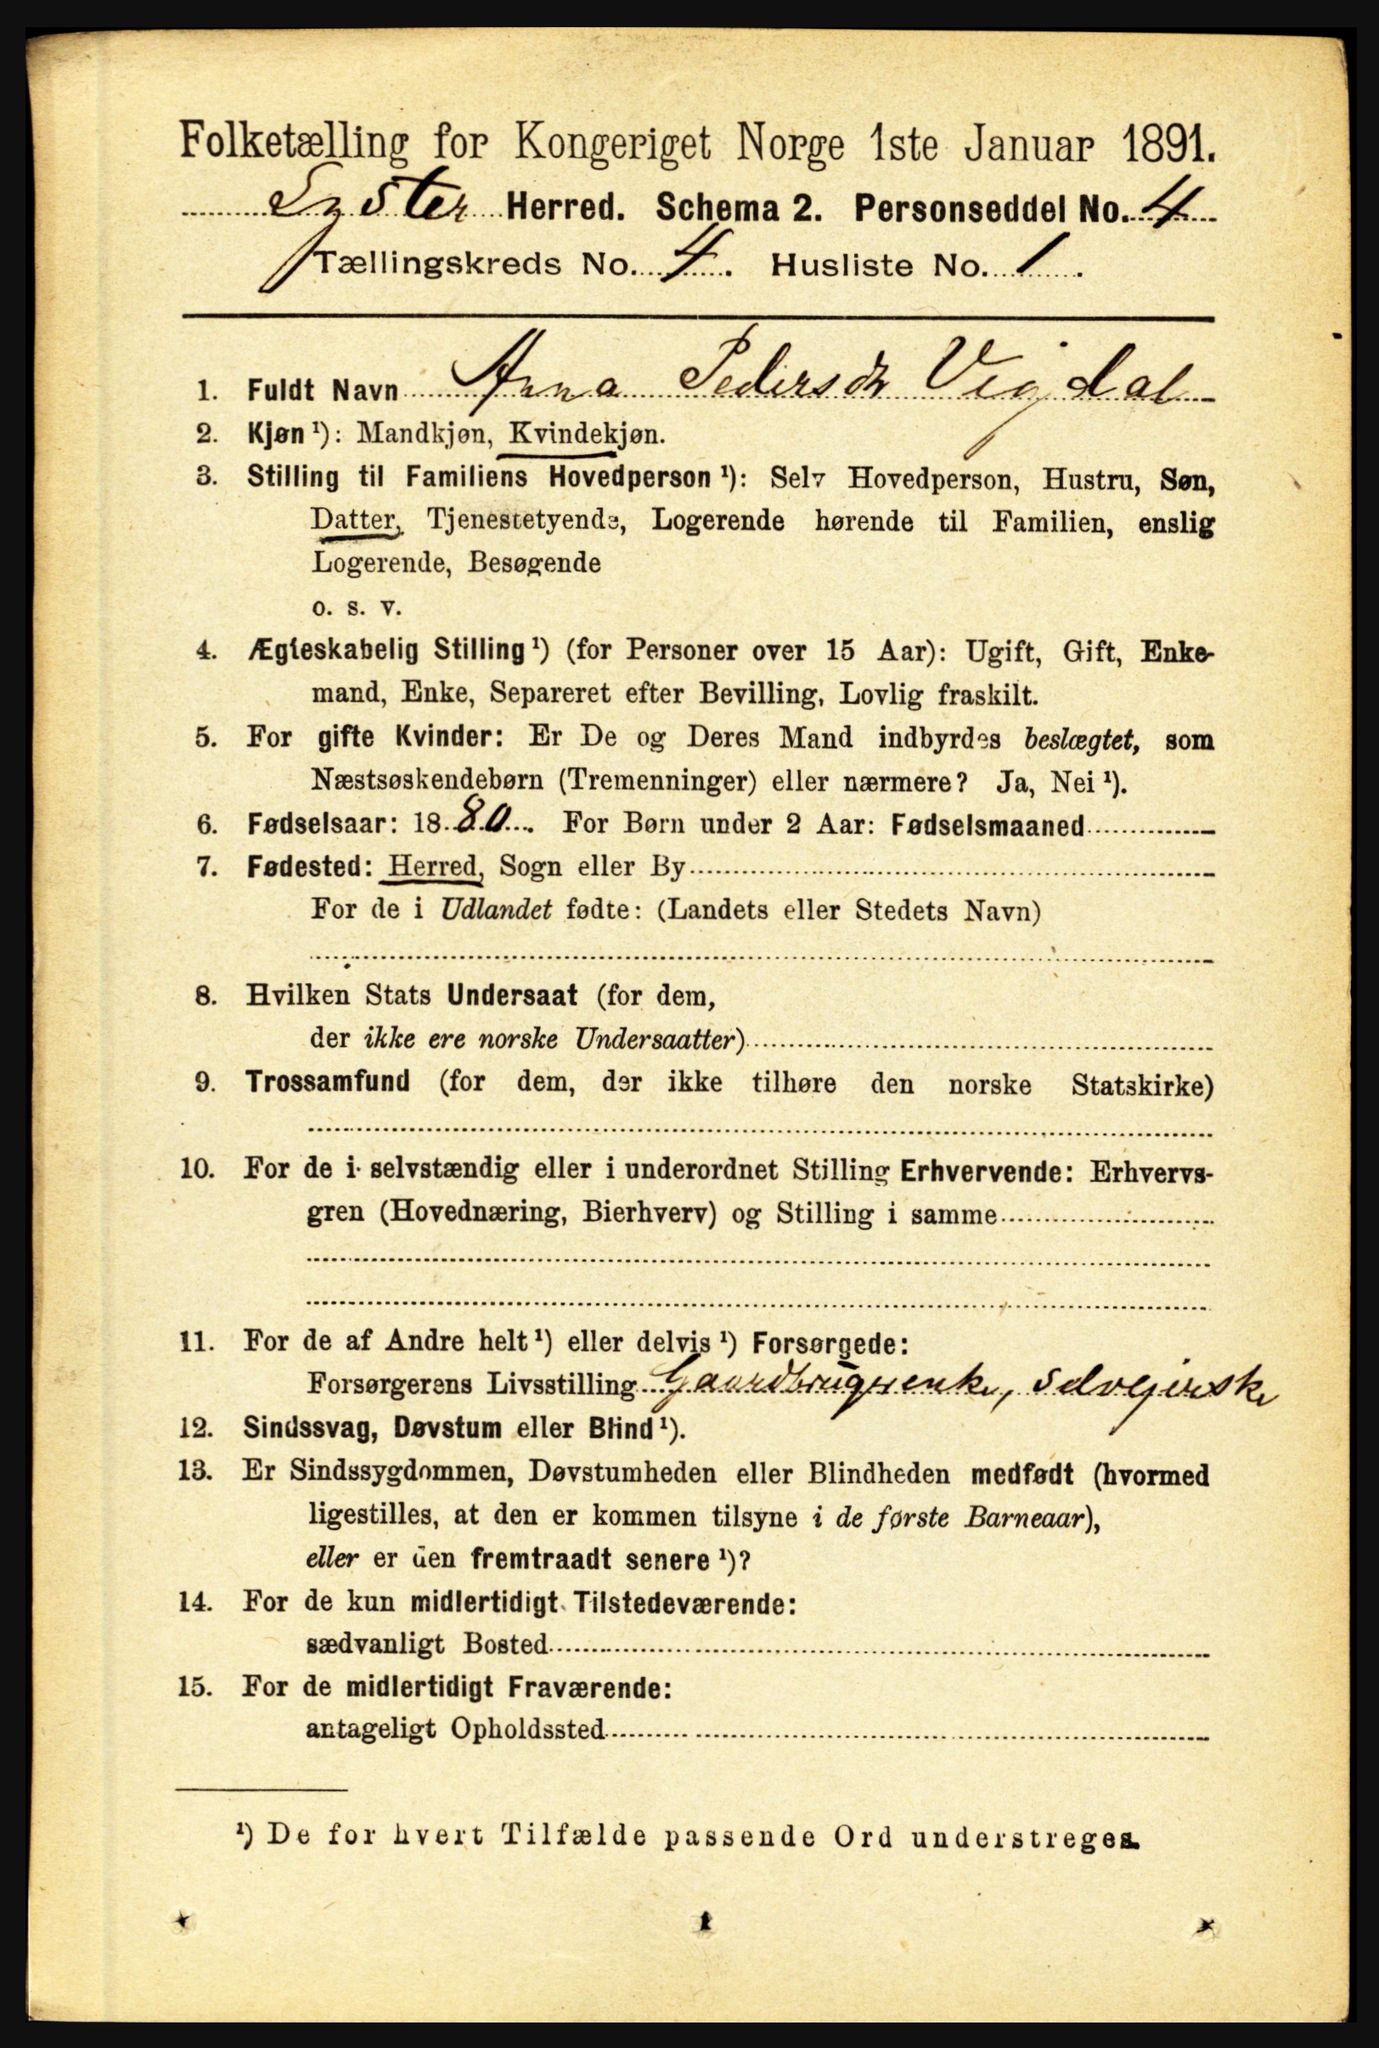 Folketælling for Kongeriget Norge 1ste Januar 1891.
Lyster Herred. Schema 2. Personseddel No. 4
Tællingskreds No. 4. Husliste No. 1.
1. Fuldt Navn Anna Pedersdtr Vigdal
2. Kjøn ¹): Mandkjøn, Kvindekjøn.
3. Stilling til Familiens Hovedperson ¹): Selv Hovedperson, Hustru, Søn,
Datter, Tjenestetyende, Logerende hørende til Familien, enslig
Logerende, Besøgende
o. s. v.
4. Ægteskabelig Stilling ¹) (for Personer over 15 Aar): Ugift, Gift, Enke-
mand, Enke, Separeret efter Bevilling, Lovlig fraskilt.
5. For gifte Kvinder: Er De og Deres Mand indbyrdes beslægtet, som
Næstsøskendebørn (Tremenninger) eller nærmere? Ja, Nei ¹).
6. Fødselsaar: 1880. For Børn under 2 Aar: Fødselsmaaned
7. Fødested: Herred, Sogn eller By
For de i Udlandet fødte: (Landets eller Stedets Navn)
8. Hvilken Stats Undersaat (for dem,
der ikke ere norske Undersaatter)
9. Trossamfund (for dem, der ikke tilhøre den norske Statskirke)
10. For de i selvstændig eller i underordnet Stilling Erhvervende: Erhvervs-
gren (Hovednæring, Bierhverv) og Stilling i samme
11. For de af Andre helt ¹) eller delvis ¹) Forsørgede:
Forsørgerens Livsstilling Gaardbrugerenke, selvejerske
12. Sindssvag, Døvstum eller Blind ¹).
13. Er Sindssygdommen, Døvstumheden eller Blindheden medfødt (hvormed
ligestilles, at den er kommen tilsyne i de første Barneaar),
eller er den fremtraadt senere ¹)?
14. For de kun midlertidigt Tilstedeværende:
sædvanligt Bosted
15. For de midlertidigt Fraværende:
antageligt Opholdssted
¹) De for hvert Tilfælde passende Ord understreges.